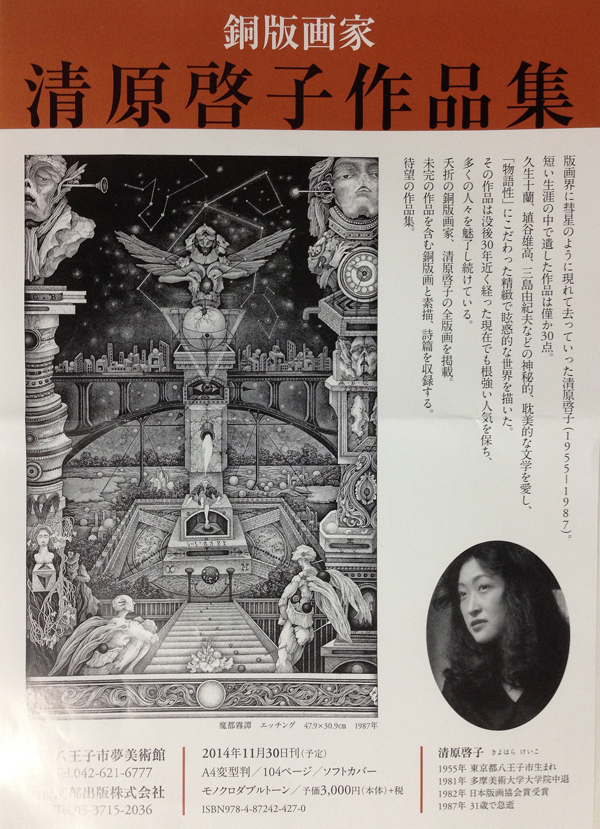 銅版画家
清原啓子作品集
版画界に彗星のように現れて去っていった清原啓子(1955―1987)。
短い生涯の中で遺した作品は僅か30点。
久生十蘭、埴谷雄高、三島由紀夫などの神秘的、耽美的な文学を愛し、
「物語性」にこだわった精緻で眩惑的な世界を描いた。
その作品は没後30年近く経った現在でも根強い人気を保ち、
多くの人々を魅了し続けている。
夭折の銅版画家、清原啓子の全版画を掲載。
未完の作品を含む銅版画と素描、詩篇を収録する。
待望の作品集。
魔都霧譚 エッチング 47.9×30.9cm 1987年
八王子市夢美術館
Tel.042-621-6777
出版株式会社
Tel.03-3715-2036
2014年11月30日刊(予定)
A4変型判/104ページ/ソフトカバー
モノクロダブルトーン/予価3,000円(本体)+税
ISBN978-4-87242-427-0
清原啓子 きよはら けいこ
1955年 東京都八王子市生まれ
1981年 多摩美術大学大学院中退
1982年 日本版画協会賞受賞
1987年 31歳で急逝